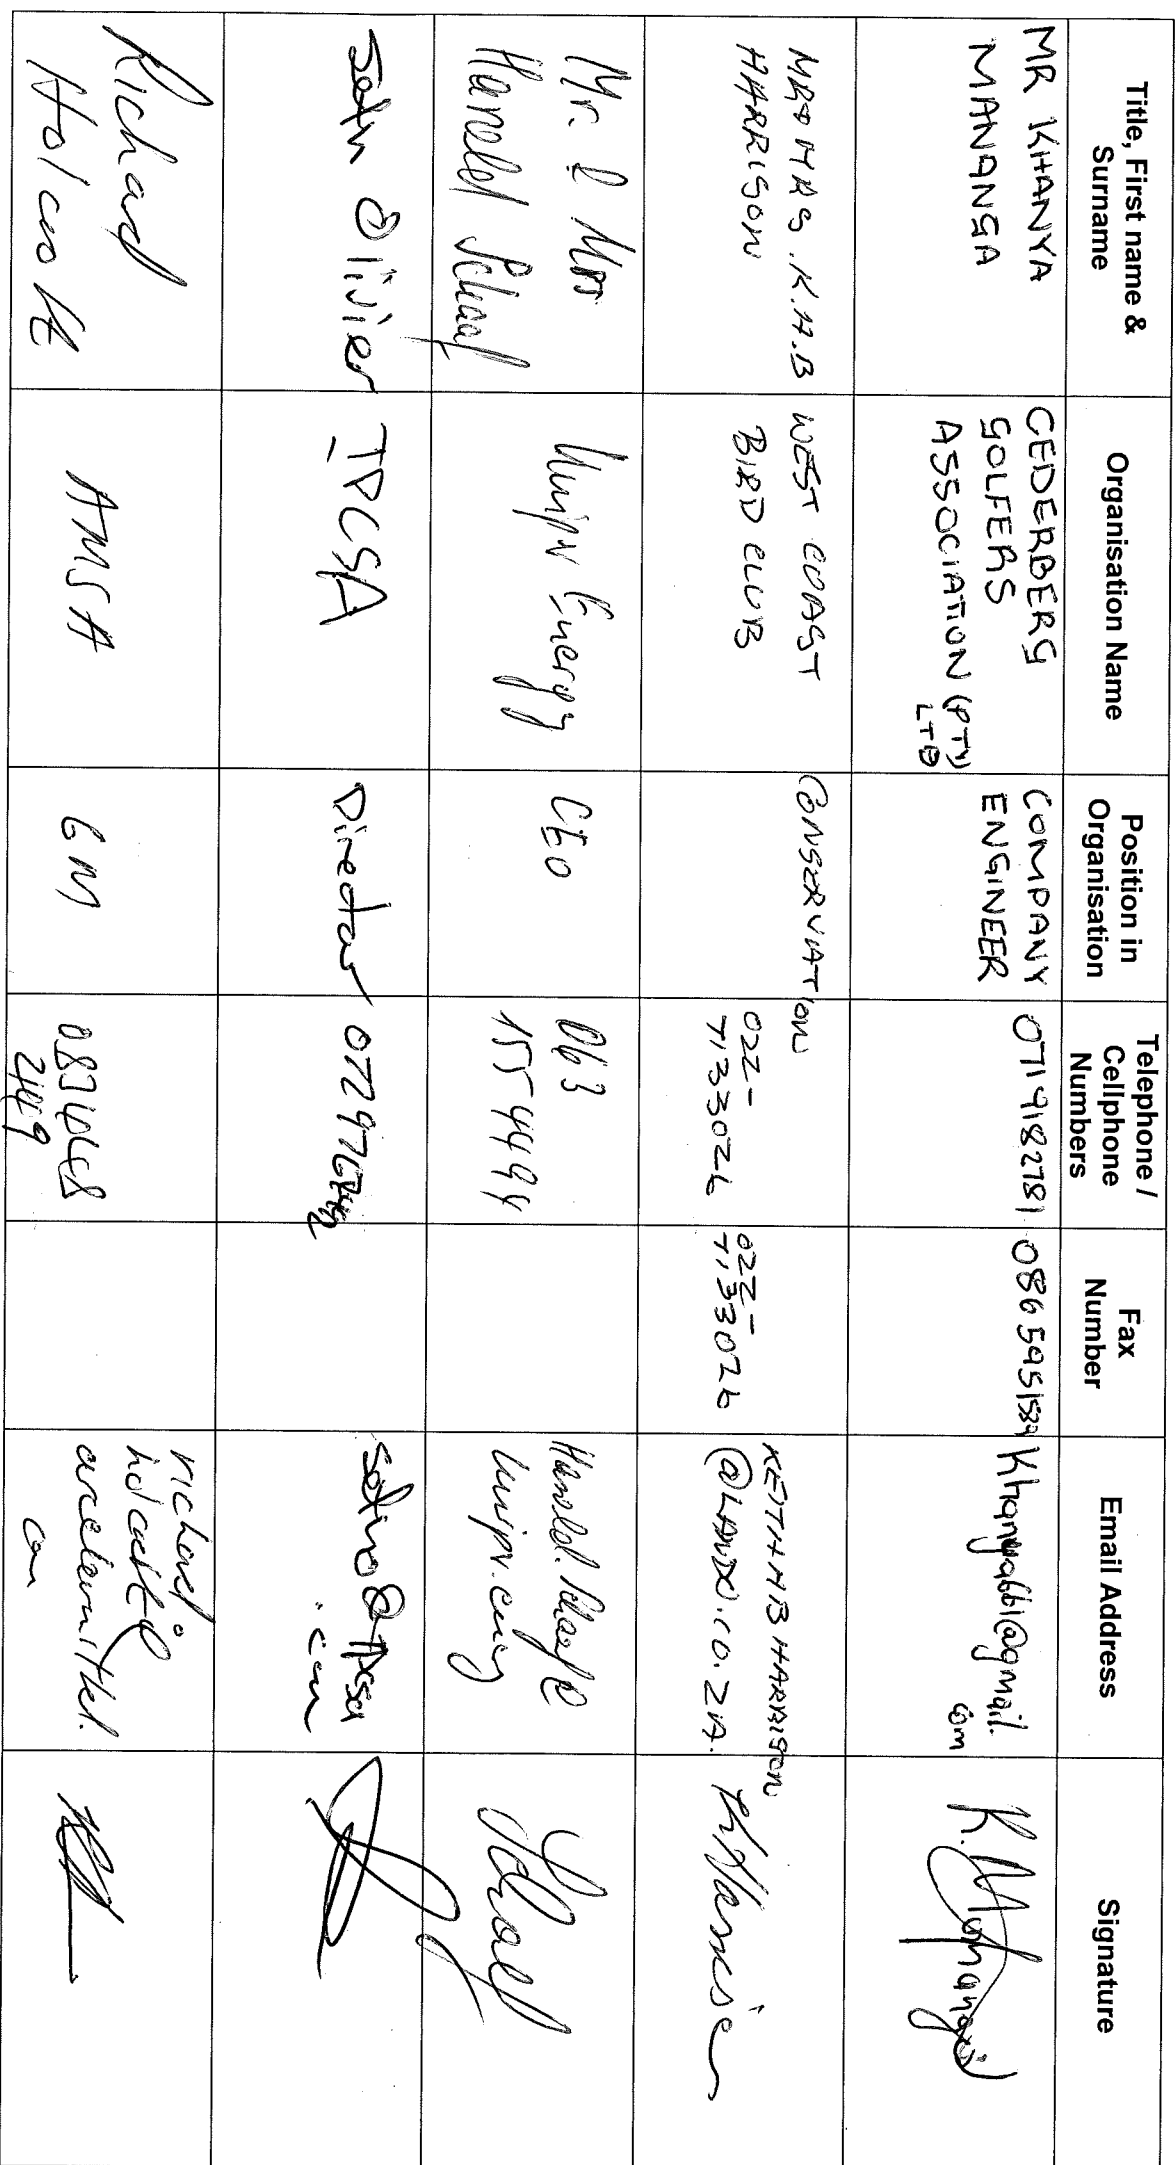 Title, First name &
Surname
Organisation Name
Position in
Organisation
Telephone /
Cellphone
Numbers
Fax
Number
Email Address
Signature
MR KHANYA
MANANGA
CEDERBERG
GOLFERS
ASSOCIATION (PTY)
LTD
COMPANY
ENGINEER
0719182781
0865951589
Khanya661@gmail.
com
K. Mananga
MR & MRS. K.H.B
HARRISON
WEST COAST
BIRD CLUB
CONSERVATION
022-
7133026
022-
7133026
KEITHHBHARRISON
@LANDO.CO.ZA.
Mr. & Mrs
Harold Schaaf
Unipv Energy
CEO
063
1554494
Harold.Schaaf@
Unipv.energy
Schaaf
John Olivier
IPCSA
Director
Richard
Holcroft
AMSA
GM